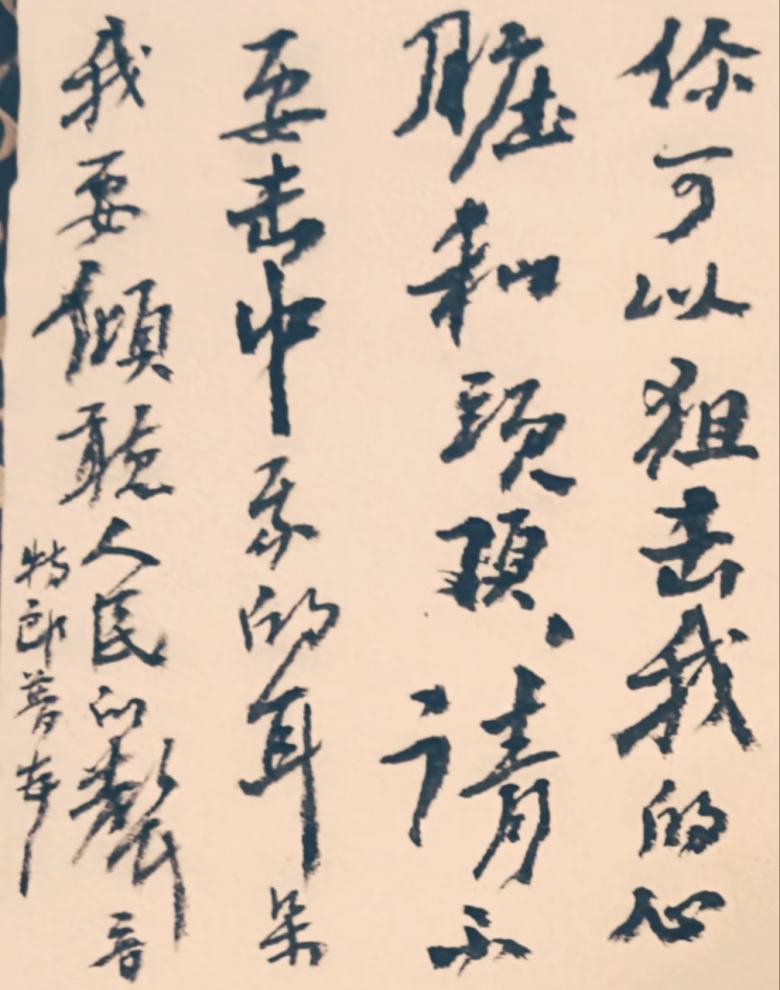 你可以狙击我的心
脏和头颅、请不
要击中我的耳朵
我要倾听人民的声音
特郎普书